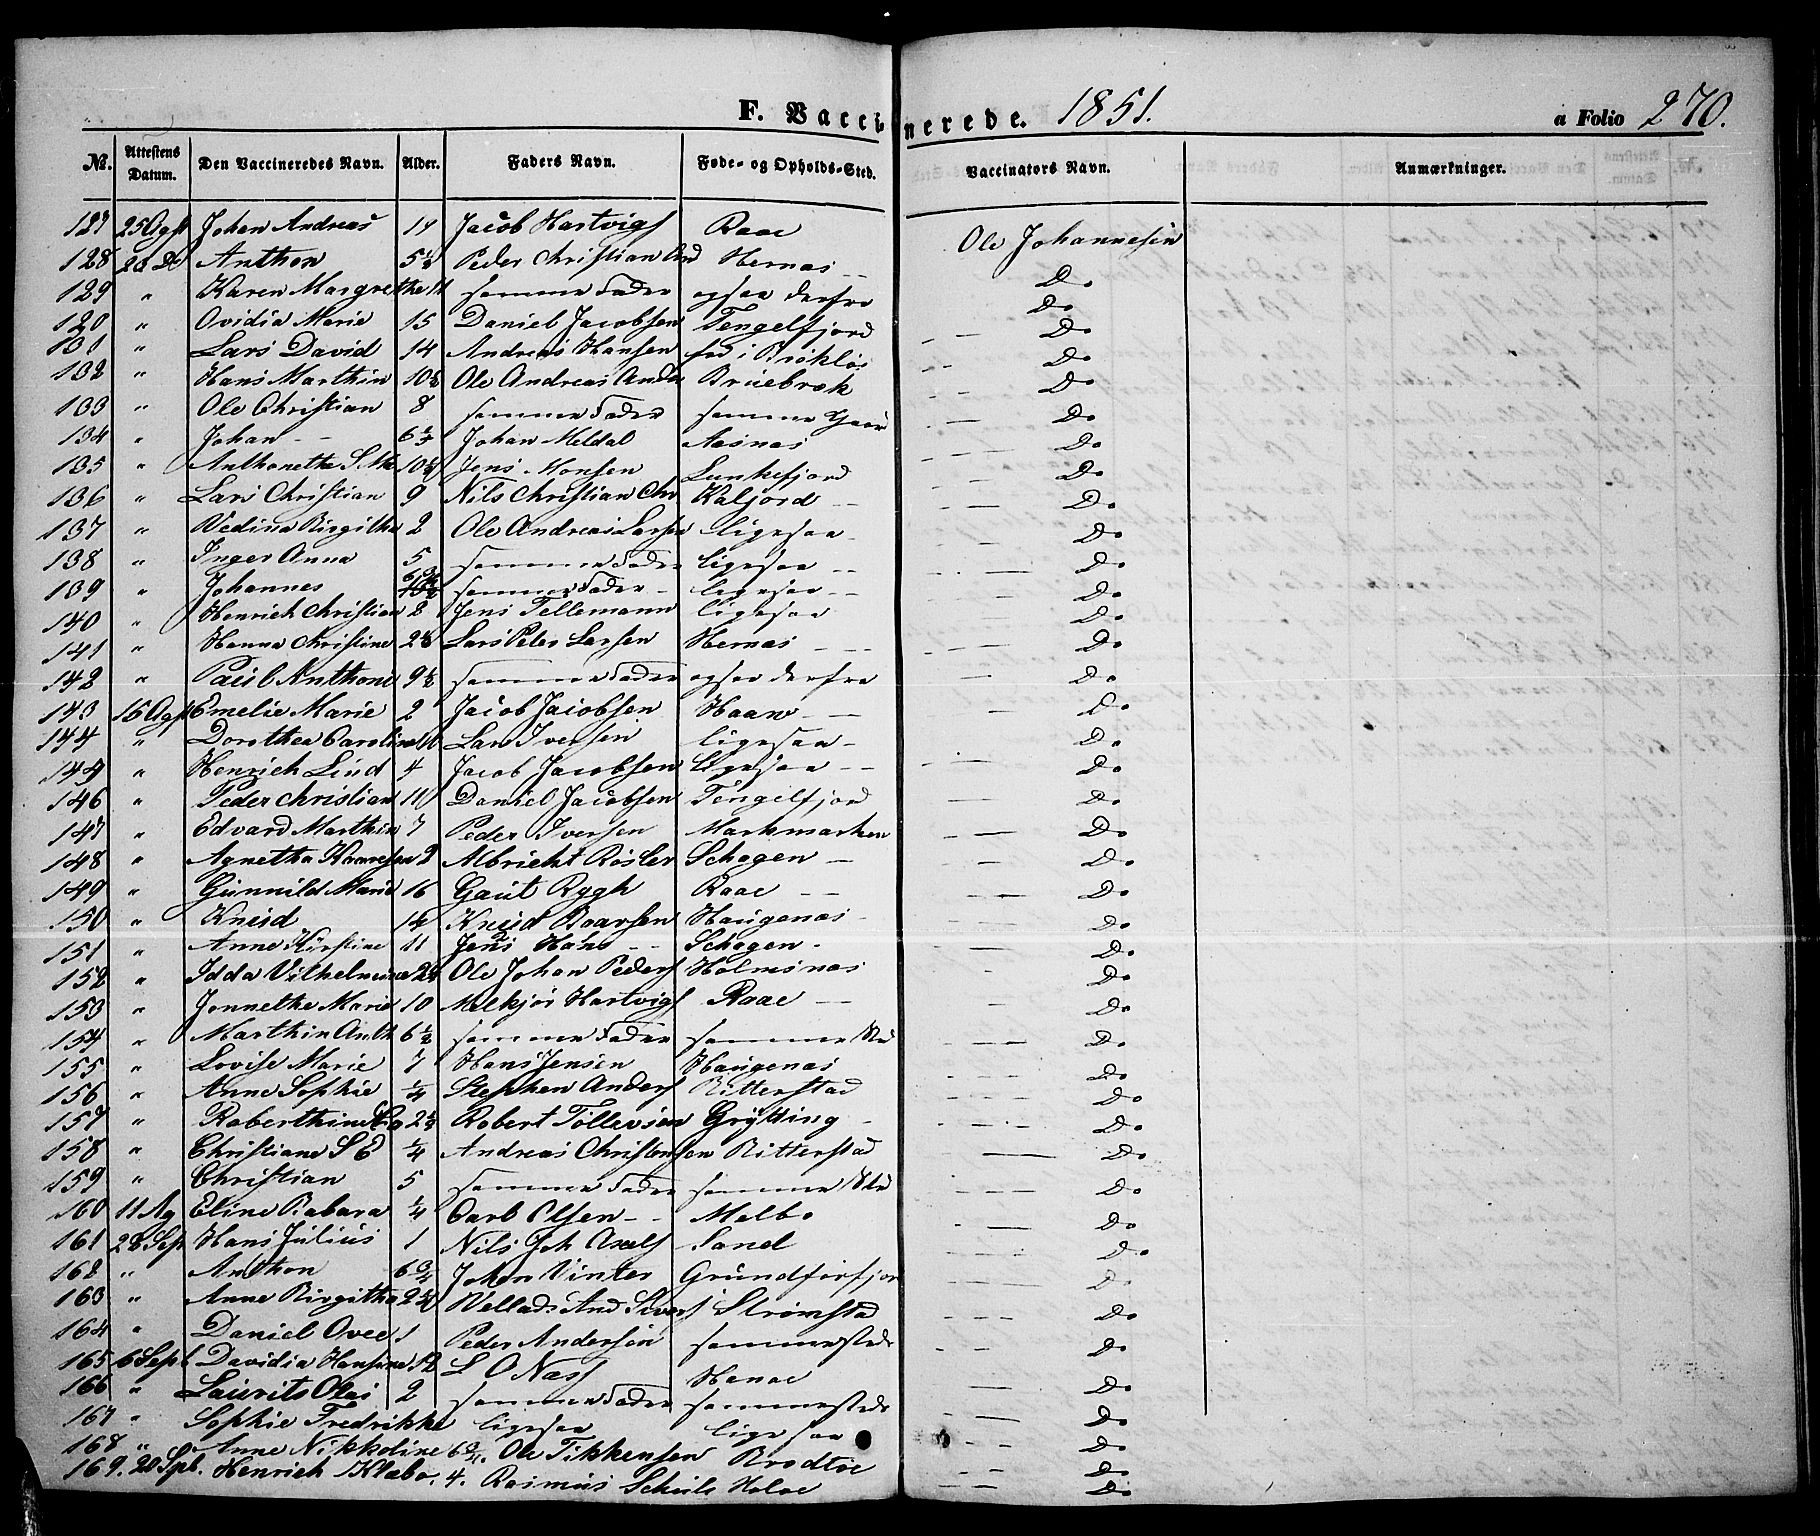 F. Vaccinerede. 1851. a Folio 270.
No. Attestens Datum. Den Vaccineredes Navn. Alder. Faders Navn. Føde- og Opholds-Sted. Vaccinators Navn. Anmærkninger.
127 25 Agst Johan Andreas 14 Jacob Hartvigs Raae Ole Johannesen
128 20 Do Anthon 5 1/2 Peder Christian And Hernæs Do
129 " Karen Margrethe 11 samme Fader ogsaa derfra Do
120 " Ovidia Marie 15 Daniel Jacobsen Tengelfjord Do
131 " Lars David 14 Andreas Hansen fød i Brokløs Do
132 " Hans Marthin 10 1/2 Ole Andreas Ander Bruebræk Do
133 " Ole Christian 8 samme Fader samme Gaard Do
134 " Johan 6 1/2 Johan Meldal Aasnæs Do
135 " Anthonetha S Mr 10 1/2 Jens Monsen Lunkefjord Do
136 " Lars Christian 9 Nils Christian Chr Kaljord Do
137 " Vedina Birgitha 2 Ole Andreas Larsen ligesaa Do
138 " Inger Anna 5 samme Fader ligesaa Do
139 " Johannes 6 3/4 samme Fader ligesaa Do
140 " Henrich Christian 2 Jens Tellemann ligesaa Do
141 " Hanna Christine 2 1/2 Lars Peter Larsen Hernæs Do
142 " Paul Anthone 9 1/2 samme Fader ogsaa derfra Do
143 16 Agst Emelie Marie 2 Jacob Jacobsen Haaw Do
144 " Dorothea Caroline 11 Lars Iversen ligesaa Do
144 " Henrich Lind 4 Jacob Jacobsen ligesaa Do
146 " Peder Christian 11 Daniel Jacobsen Tengelfjord Do
147 " Edvard Marthin 7 Peder Iversen Markmarken Do
148 " Agnetha Haaresen 2 Albricht Røsler Schogen Do
149 " Gunnild Marie 16 Gaut Rygh Raae Do
150 " Kneud 14 Kneud Baarsen Haugenæs Do
151 " Anne Kirstine 11 Jens Hans Schogen Do
152 " Idda Vilhelmine 2 1/2 Ole Johan Peders Holmsnæs Do
153 " Jennethe Marie 10 Melkjør Hartvigs Raae Do
154 " Marthin Anth 6 1/2 samme Fader samme Sted Do
155 " Lovise Marie 7 Hans Jensen Haugenæs Do
156 " Anne Sophie 1/4 Stephen Anders Ritterstad Do
157 " Roberthine 2 1/2 Robert Tollevsen Grytting Do
158 " Christiane S E 1/4 Andreas Christensen Ritterstad Do
159 " Christian 5 samme Fader samme Sted Do
160 11 Ag Eline Babara 1/4 Carl Olsen Melbo Do
161 28 Sep Hans Julius 1 Nils Joh Axels Sand Do
162 " Anthon 6 3/4 Johan Vinter Grundforfjor Do
163 " Anne Birgitha 2 1/2 Vellads And Sivers Strømstad Do
164 " Daniel Ovee 1 Peder Andersen sammested Do
165 6 Sept Davidia Hansine 12 L O Næss Hanae Do
166 " Laurits Olai 2 samme Fader sammested Do
167 " Sophie Fredrikke ligesaa ligesaa Do
168 " Anne Nikkoline 6 3/4. Ole Tikkensen Brodtøe Do
169. 20 Spb. Henrich Klæbo. 4. Rasmus Schul Holae Do